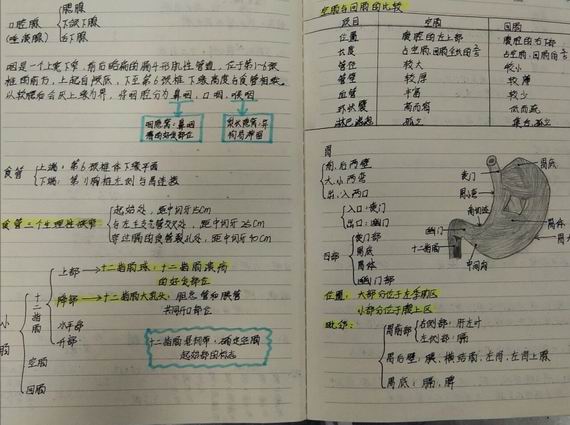 腮腺
口腔腺 下颌下腺
(唾液腺) 舌下腺
咽是一个上宽下窄，前后略扁的漏斗形肌性管道，位于第1-6颈
椎的前方，上起自颅底，下至第6颈椎下缘高度与食管相续。
以软腭后缘及会厌上缘为界，将咽腔分为鼻咽，口咽，喉咽
咽隐窝：鼻咽
癌的好发部位
梨状隐窝：异
物易滞留
食管 上端：第6颈椎体下缘平面
下端：第11胸椎左侧与贲门连接
食管三个生理性狭窄
起始处，距中切牙15cm
与左主支气管交叉处，距中切牙25cm
穿过膈的食管裂孔处，距中切牙40cm
小肠
十二指肠
上部→十二指肠球：十二指肠溃疡
的好发部位
降部→十二指肠大乳头：胆总管和胰管
共同开口部位
水平部
升部
十二指肠悬韧带：确定空肠
起始部的标志
空肠
回肠
空肠与回肠的比较
项目 空肠 回肠
位置 腹腔的左上部 腹腔的右下部
长度 占空肠，回肠全长的 占空肠，回肠的
管径 较大 较小
管壁 较厚 较薄
血管 丰富 较少
环状襞 高而密 低而疏
淋巴滤泡 孤立 集合，孤立
胃
前，后两壁
大，小两弯
出，入两口
入口：贲门
出口：幽门
四部
贲门部
胃底
胃体
幽门部
胃底
贲门
胃小弯
角切迹
幽门
十二指肠
胃体
中间沟
位置：大部分位于左季肋区
小部分位于腹上区
毗邻：
胃前部 右侧部：肝左叶
左侧部：膈
胃后壁：胰，横结肠，左肾，左肾上腺
胃底：膈，脾